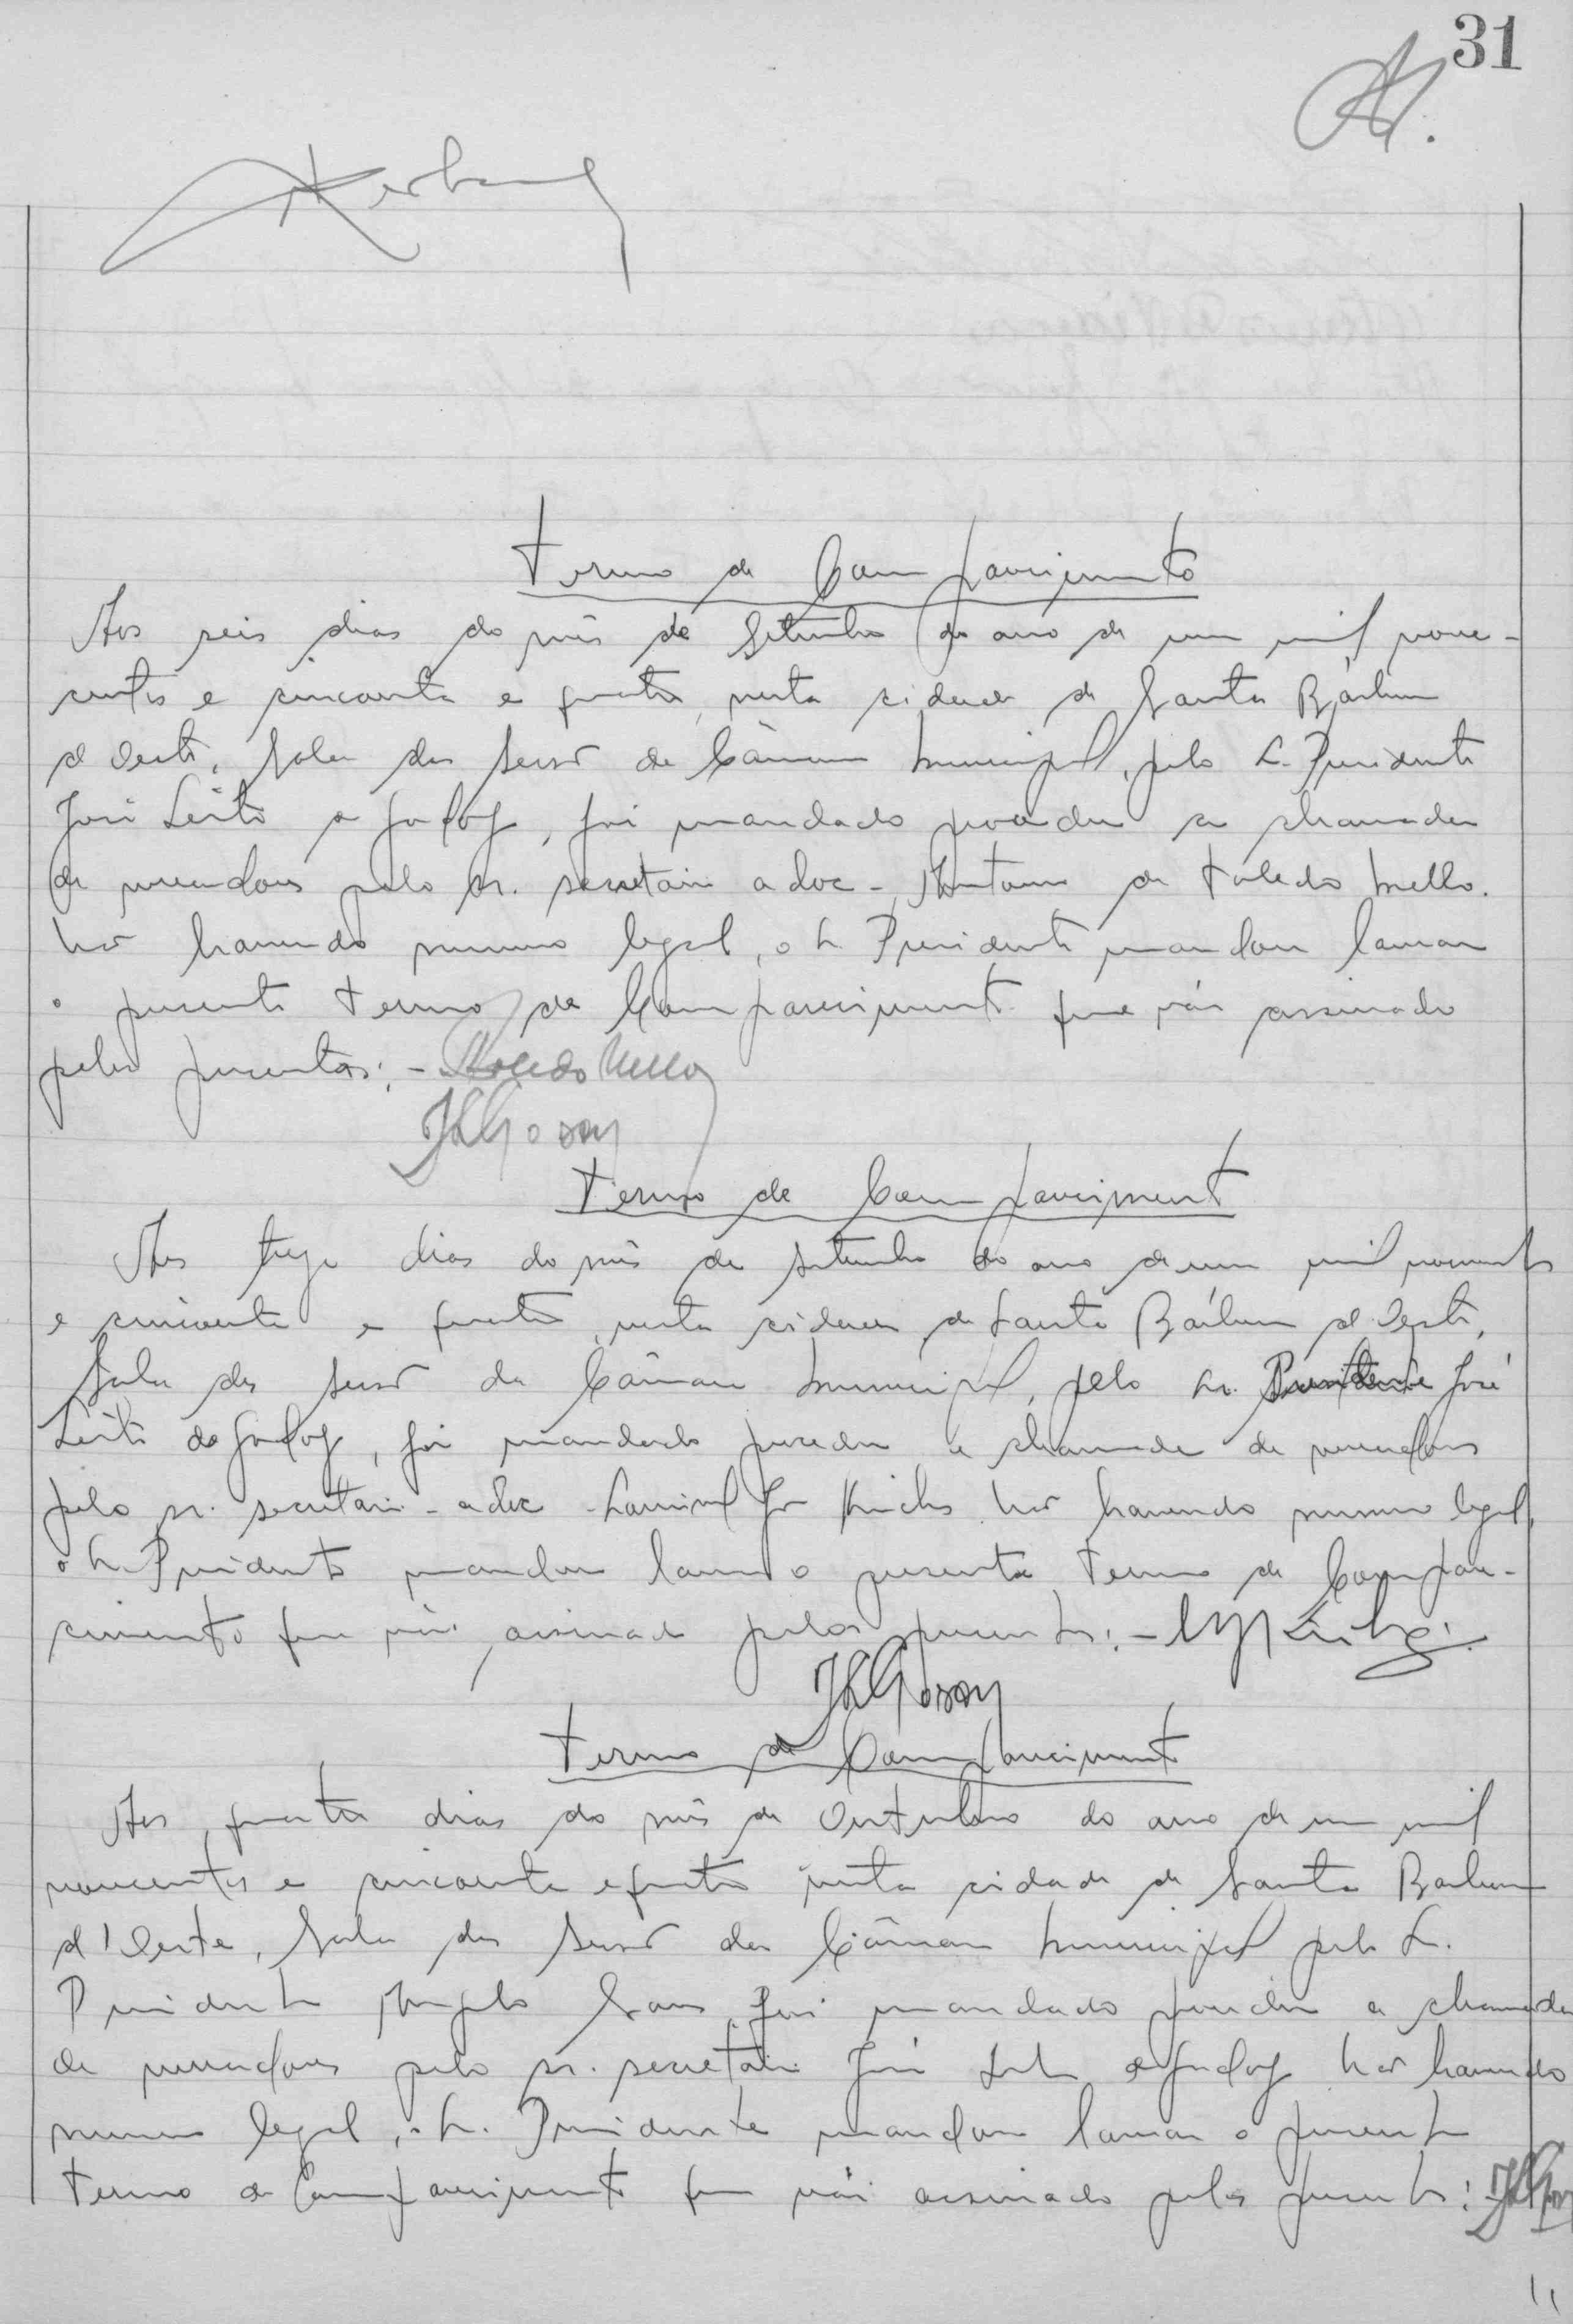 31
Termo de Comparecimento
Aos seis dias do mês de Setembro do ano de um mil nove-
centos e cincoenta e quatro, nesta cidade de Santa Bárbara
d'Oeste, Sala das Sessões da Câmara Municipal, pelo Sr. Presidente
José Leite de Godoy, foi mandado proceder a chamada
de vereadores pelo sr. secretario adoc - Antonio de Toledo Mello.
Não havendo numero legal, o Sr. Presidente mandou lavrar
o presente termo de Comparecimento que vai assinado
pelos presentes: - AToledo Mello
JLGodoy
Termo de Comparecimento
Aos treze dias do mês de setembro do ano de um mil novecentos
e cincoenta e quatro, nesta cidade de Santa Bárbara d'Oeste,
Sala das Sessões da Câmara Municipal, pelo Sr. Presidente José
Leite de Godoy, foi mandado proceder a chamada de vereadores
pelo sr. secretario - adoc Não havendo numero legal,
o Sr. Presidente mandou lavrar o presente termo de Compare-
cimento que vai assinado pelos presentes: -
JLGodoy
Termo de Comparecimento
Aos quatro dias do mês de Outubro do ano de um mil
novecentos e cincoenta e quatro nesta cidade de Santa Barbara
d'Oeste, Sala das Sessões da Câmara Municipal pelo Sr.
Presidente Angelo foi mandado proceder a chamada
de vereadores pelo sr. secretario José Leite de Godoy Não havendo
numero legal, o Sr. Presidente mandou lavrar o presente
termo de Comparecimento que vai assinado pelos presentes: JLGodoy